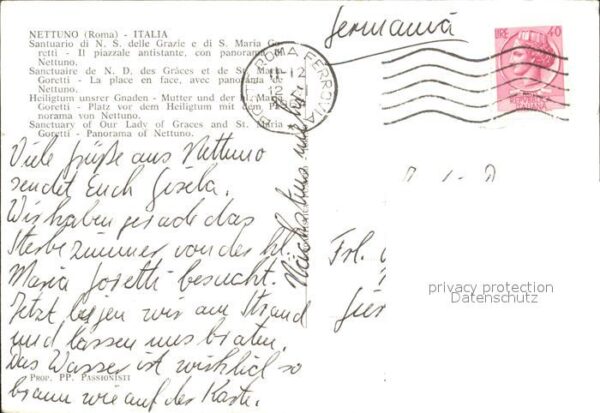 NETTUNO (Roma) - ITALIA
Santuario di N. S. delle Grazie e di S. Maria Go-
retti - Il piazzale antistante, con panorama di
Nettuno.
Sanctuaire de N. D. des Grâces et de St. Maria
Goretti - La place en face, avec panorama de
Nettuno.
Heiligtum unsrer Gnaden - Mutter und der hl. Maria
Goretti - Platz vor dem Heiligtum mit dem Pa-
norama von Nettuno.
Sanctuary of Our Lady of Graces and St. Maria
Goretti - Panorama of Nettuno.
Germania
ROMA FERROVIA
11-12
12
LIRE 40
Viele Grüße aus Nettuno
sendet Euch Gisela.
Wir haben gerade das
Sterbezimmer von der hl.
Maria Goretti besucht.
Jetzt liegen wir am Strand
und lassen uns braten.
Das Wasser ist wirklich so
braun wie auf der Karte.
PROP. PP. PASSIONISTI
Frl.
privacy protection
Datenschutz